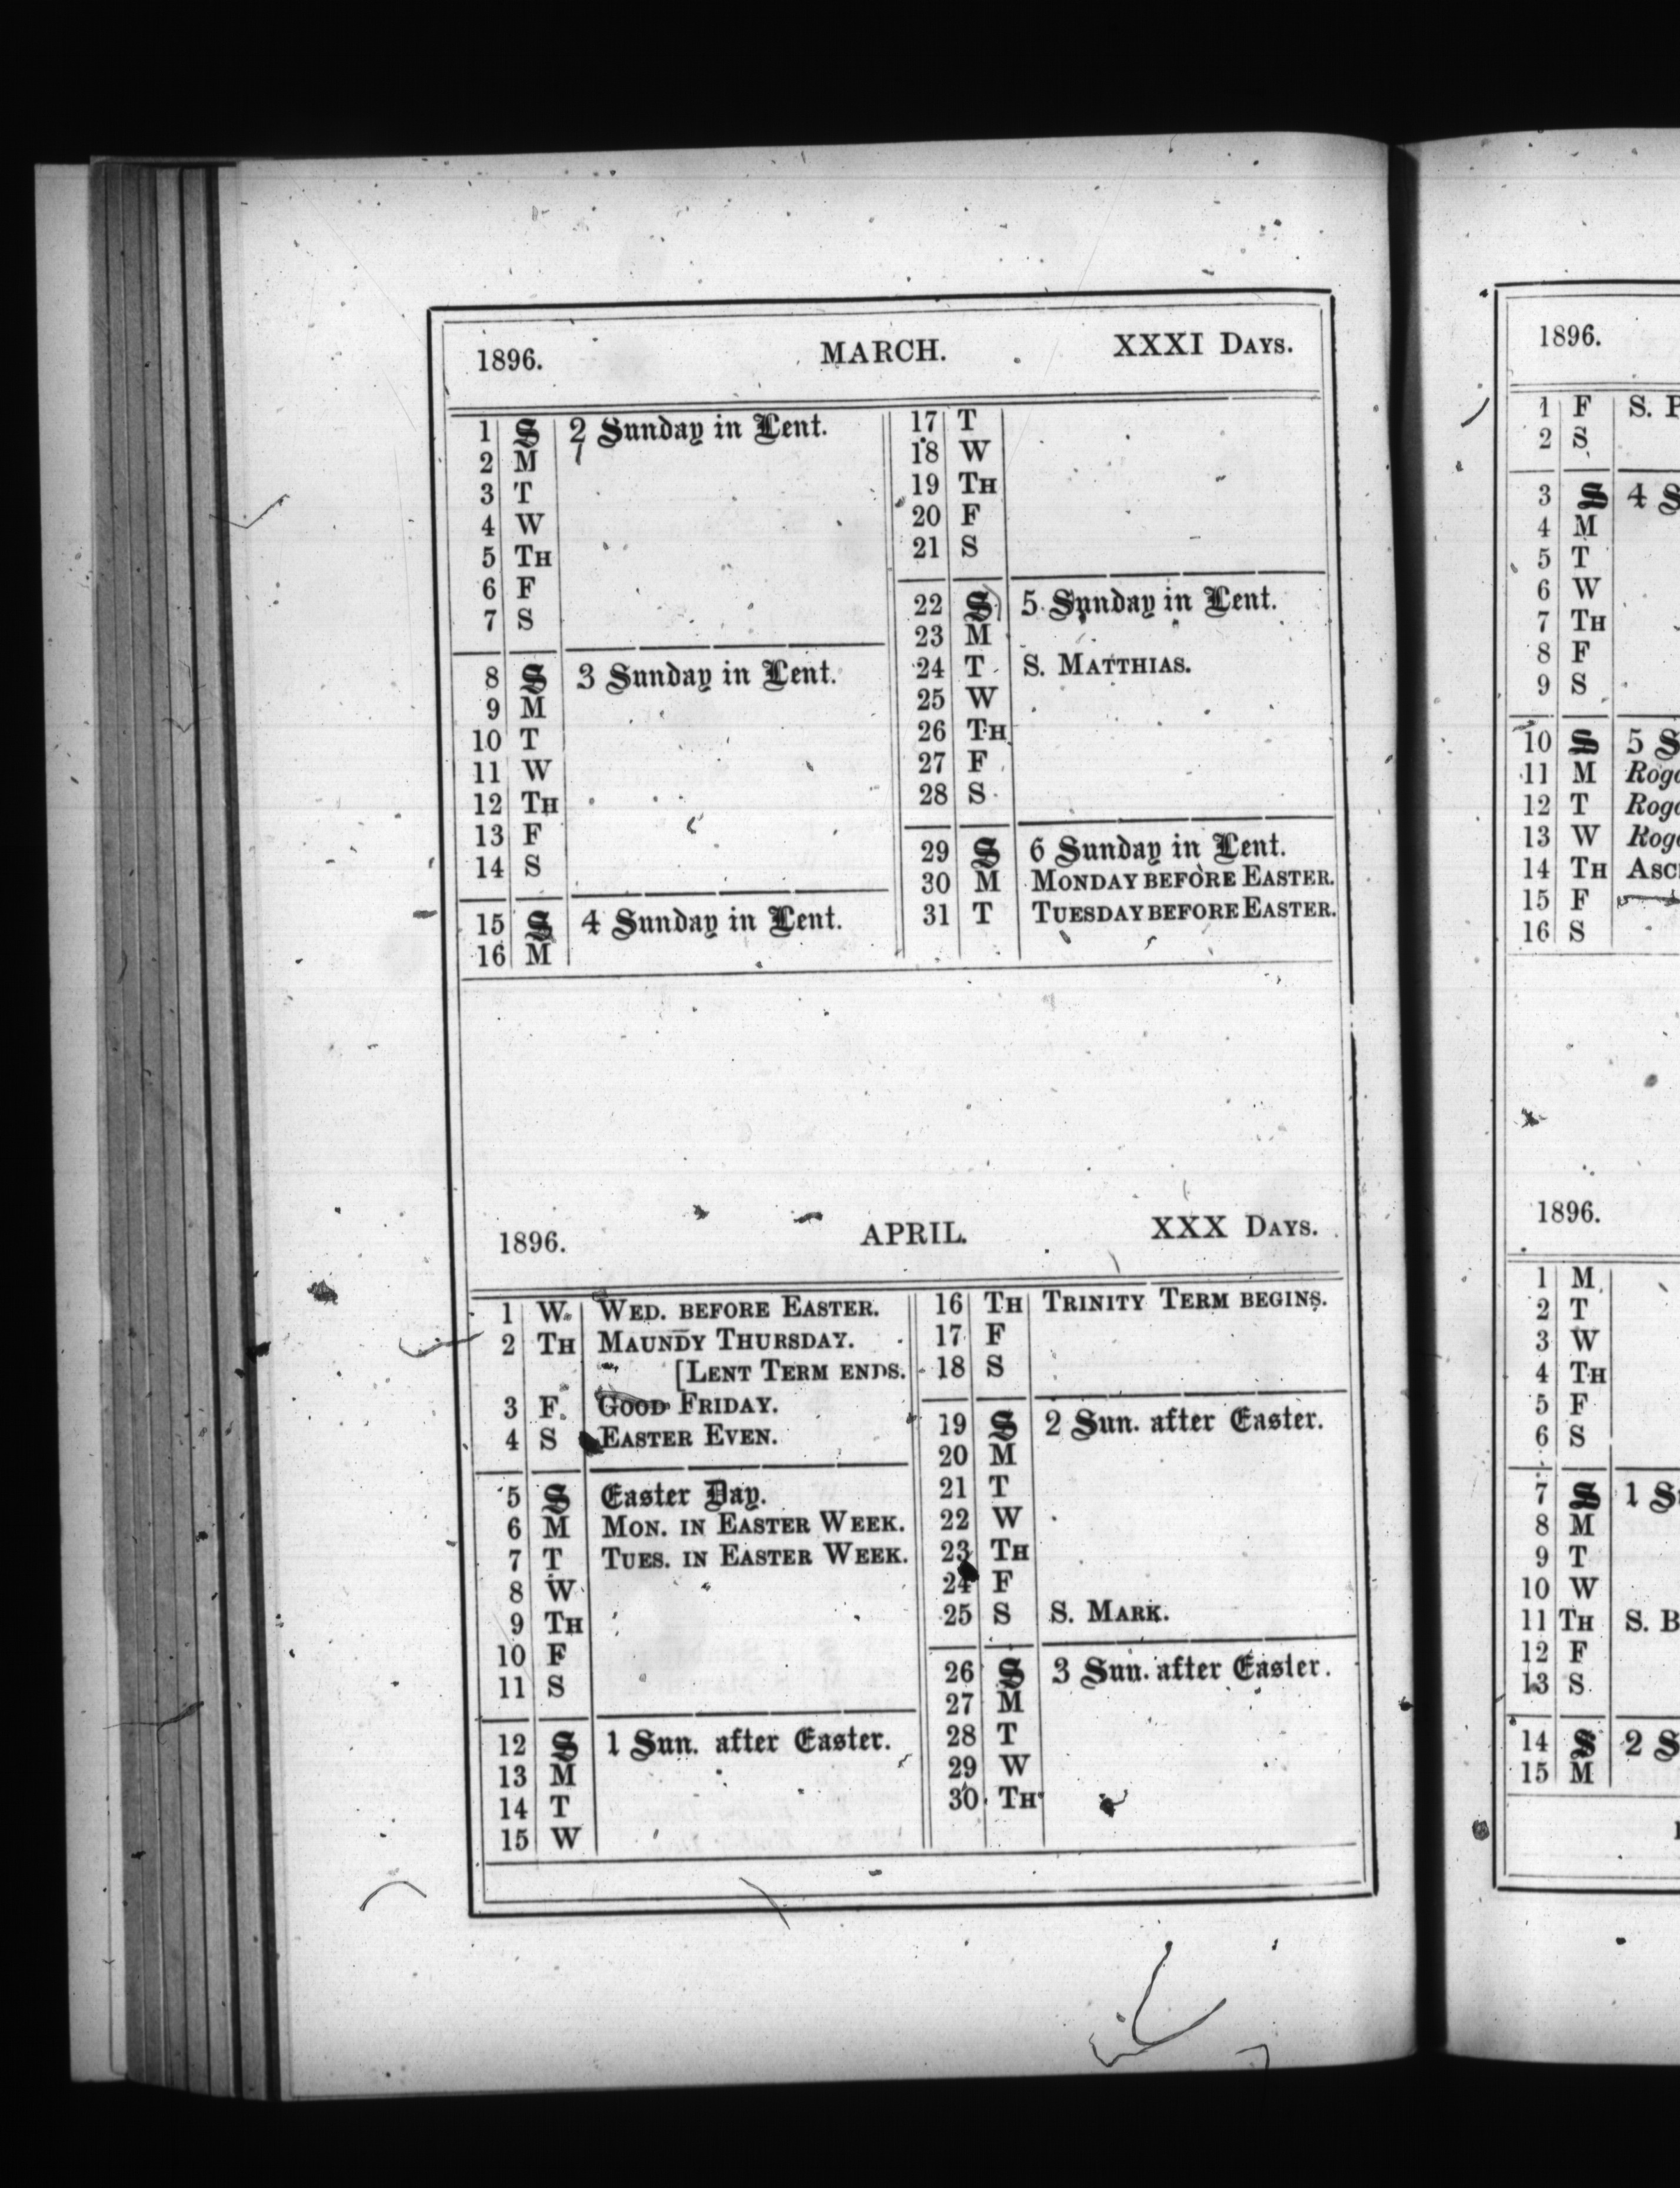 1896. MARCH. XXXI DAYS.
1 S 2 Sunday in Lent.
2 M
3 T
4 W
5 TH
6 F
7 S
8 S 3 Sunday in Lent.
9 M
10 T
11 W
12 TH
13 F
14 S
15 S 4 Sunday in Lent.
16 M
17 T
18 W
19 TH
20 F
21 S
22 S 5 Sunday in Lent.
23 M
24 T S. MATTHIAS.
25 W
26 TH
27 F
28 S
29 S 6 Sunday in Lent.
30 M MONDAY BEFORE EASTER.
31 T TUESDAY BEFORE EASTER.
1896. APRIL. XXX DAYS.
1 W WED. BEFORE EASTER.
2 TH MAUNDY THURSDAY.
[LENT TERM ENDS.
3 F GOOD FRIDAY.
4 S EASTER EVEN.
5 S Easter Day.
6 M MON. IN EASTER WEEK.
7 T TUES. IN EASTER WEEK.
8 W
9 TH
10 F
11 S
12 S 1 Sun. after Easter.
13 M
14 T
15 W
16 TH TRINITY TERM BEGINS.
17 F
18 S
19 S 2 Sun. after Easter.
20 M
21 T
22 W
23 TH
24 F
25 S S. MARK.
26 S 3 Sun. after Easter.
27 M
28 T
29 W
30 TH
1896.
1 F S.
2 S
3 S 4
4 M
5 T
6 W
7 TH
8 F
9 S
10 S 5
11 M
12 T
13 W
14 TH
15 F
16 S
1896.
1 M
2 T
3 W
4 TH
5 F
6 S
7 S 1
8 M
9 T
10 W
11 TH S.
12 F
13 S
14 S 2
15 M